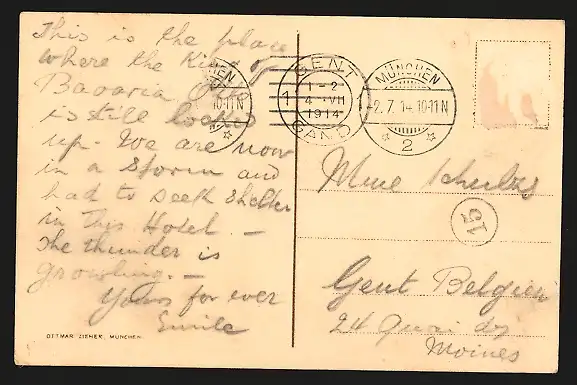 This is the place
where the King of
Bavaria Otto
is still locked
up - We are now
in a storm and
had to seek shelter
in this Hotel. -
The thunder is
growling. -
Yours for ever
Emile
OTTMAR ZIEHER, MÜNCHEN
GENT
1 - 2
1 4 VII 1
1914
GAND
MÜNCHEN
10-11 N
MÜNCHEN
-2.7.14.10-11 N
2
Mme
15
Gent Belgien
24 Quai des
Moines